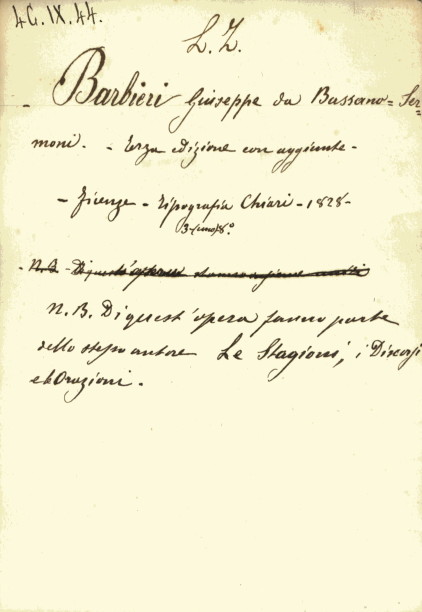 4C.IX.44.
L. Z.
- Barbieri Giuseppe da Bassano = Ser=
moni. - Terza edizione con aggiunte -
- Firenze - Tipografia Chiari - 1828 -
8.º
- N.B. - Di quest'opera
N.B. Di quest'opera fanno parte
dello stesso autore Le Stagioni, i Discorsi
e le Orazioni.